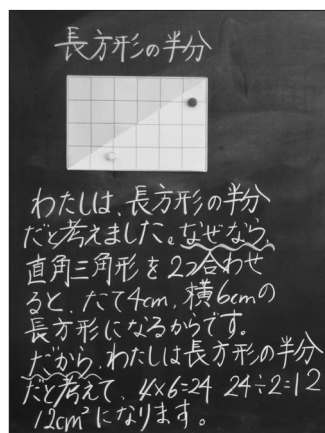 長方形の半分
わたしは、長方形の半分
だと考えました。なぜなら、
直角三角形を2つ合わせ
ると、たて4cm、横6cmの
長方形になるからです。
だから、わたしは長方形の半分
だと考えて、4×6=24 24÷2=12
12cm²になります。